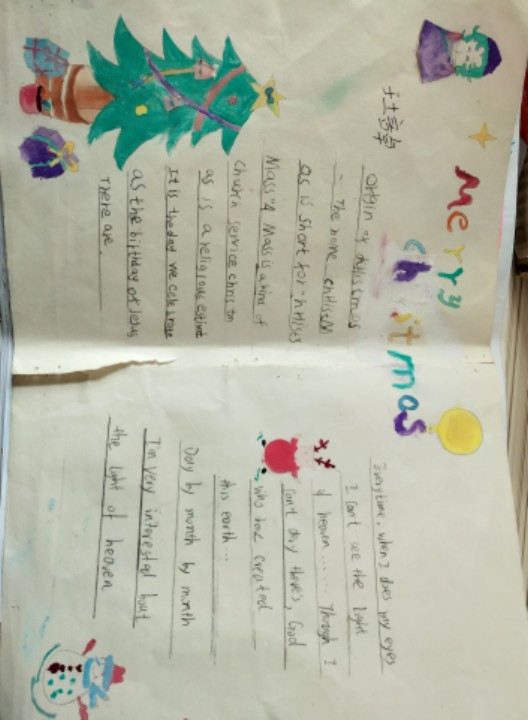 Merry
christmas
Origin of christmas
The name christM
as is short for "hrises
Mass". A Mass is a kind of
Church service christm
as is a religious
It is the day we celebrate
as the birthday of Jesus
There are.
Everytime, when I does my eyes
I can't see the light
of heaven ...... Though I
can't deny there's, God
who have created
this earth ...
Day by month by month
I'm very interested bout
the light of heaven